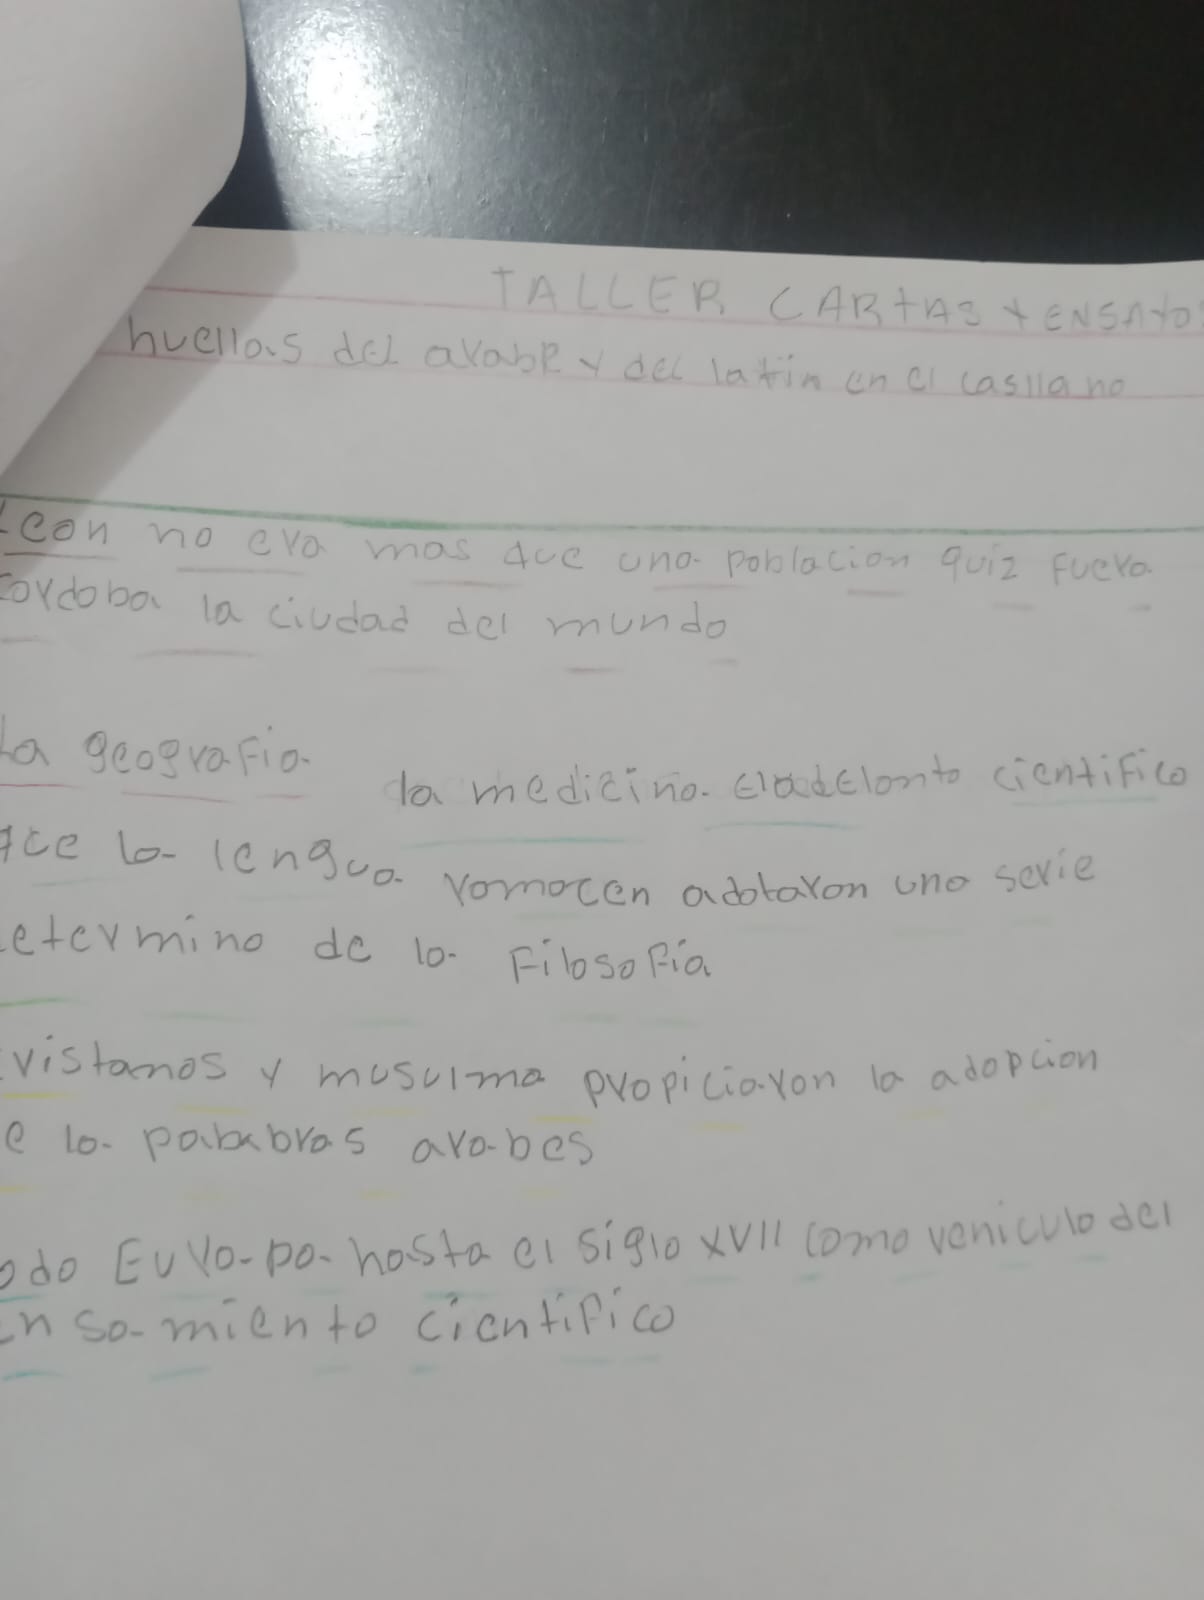 TALLER CARTAS Y ENSAYOS
huellas del arabe y del latin en el casllano
con no era mas que una poblacion quiz fuera
cordoba la ciudad del mundo
La geografia la medicina eladelanto cientifico
la lengua romacen adotaron una serie
etermino de la Filosofia
vistanos y musulma propiciaron la adopcion
e la palabras arabes
odo Europa hasta el siglo XVII como veniculo del
ensamiento cientifico